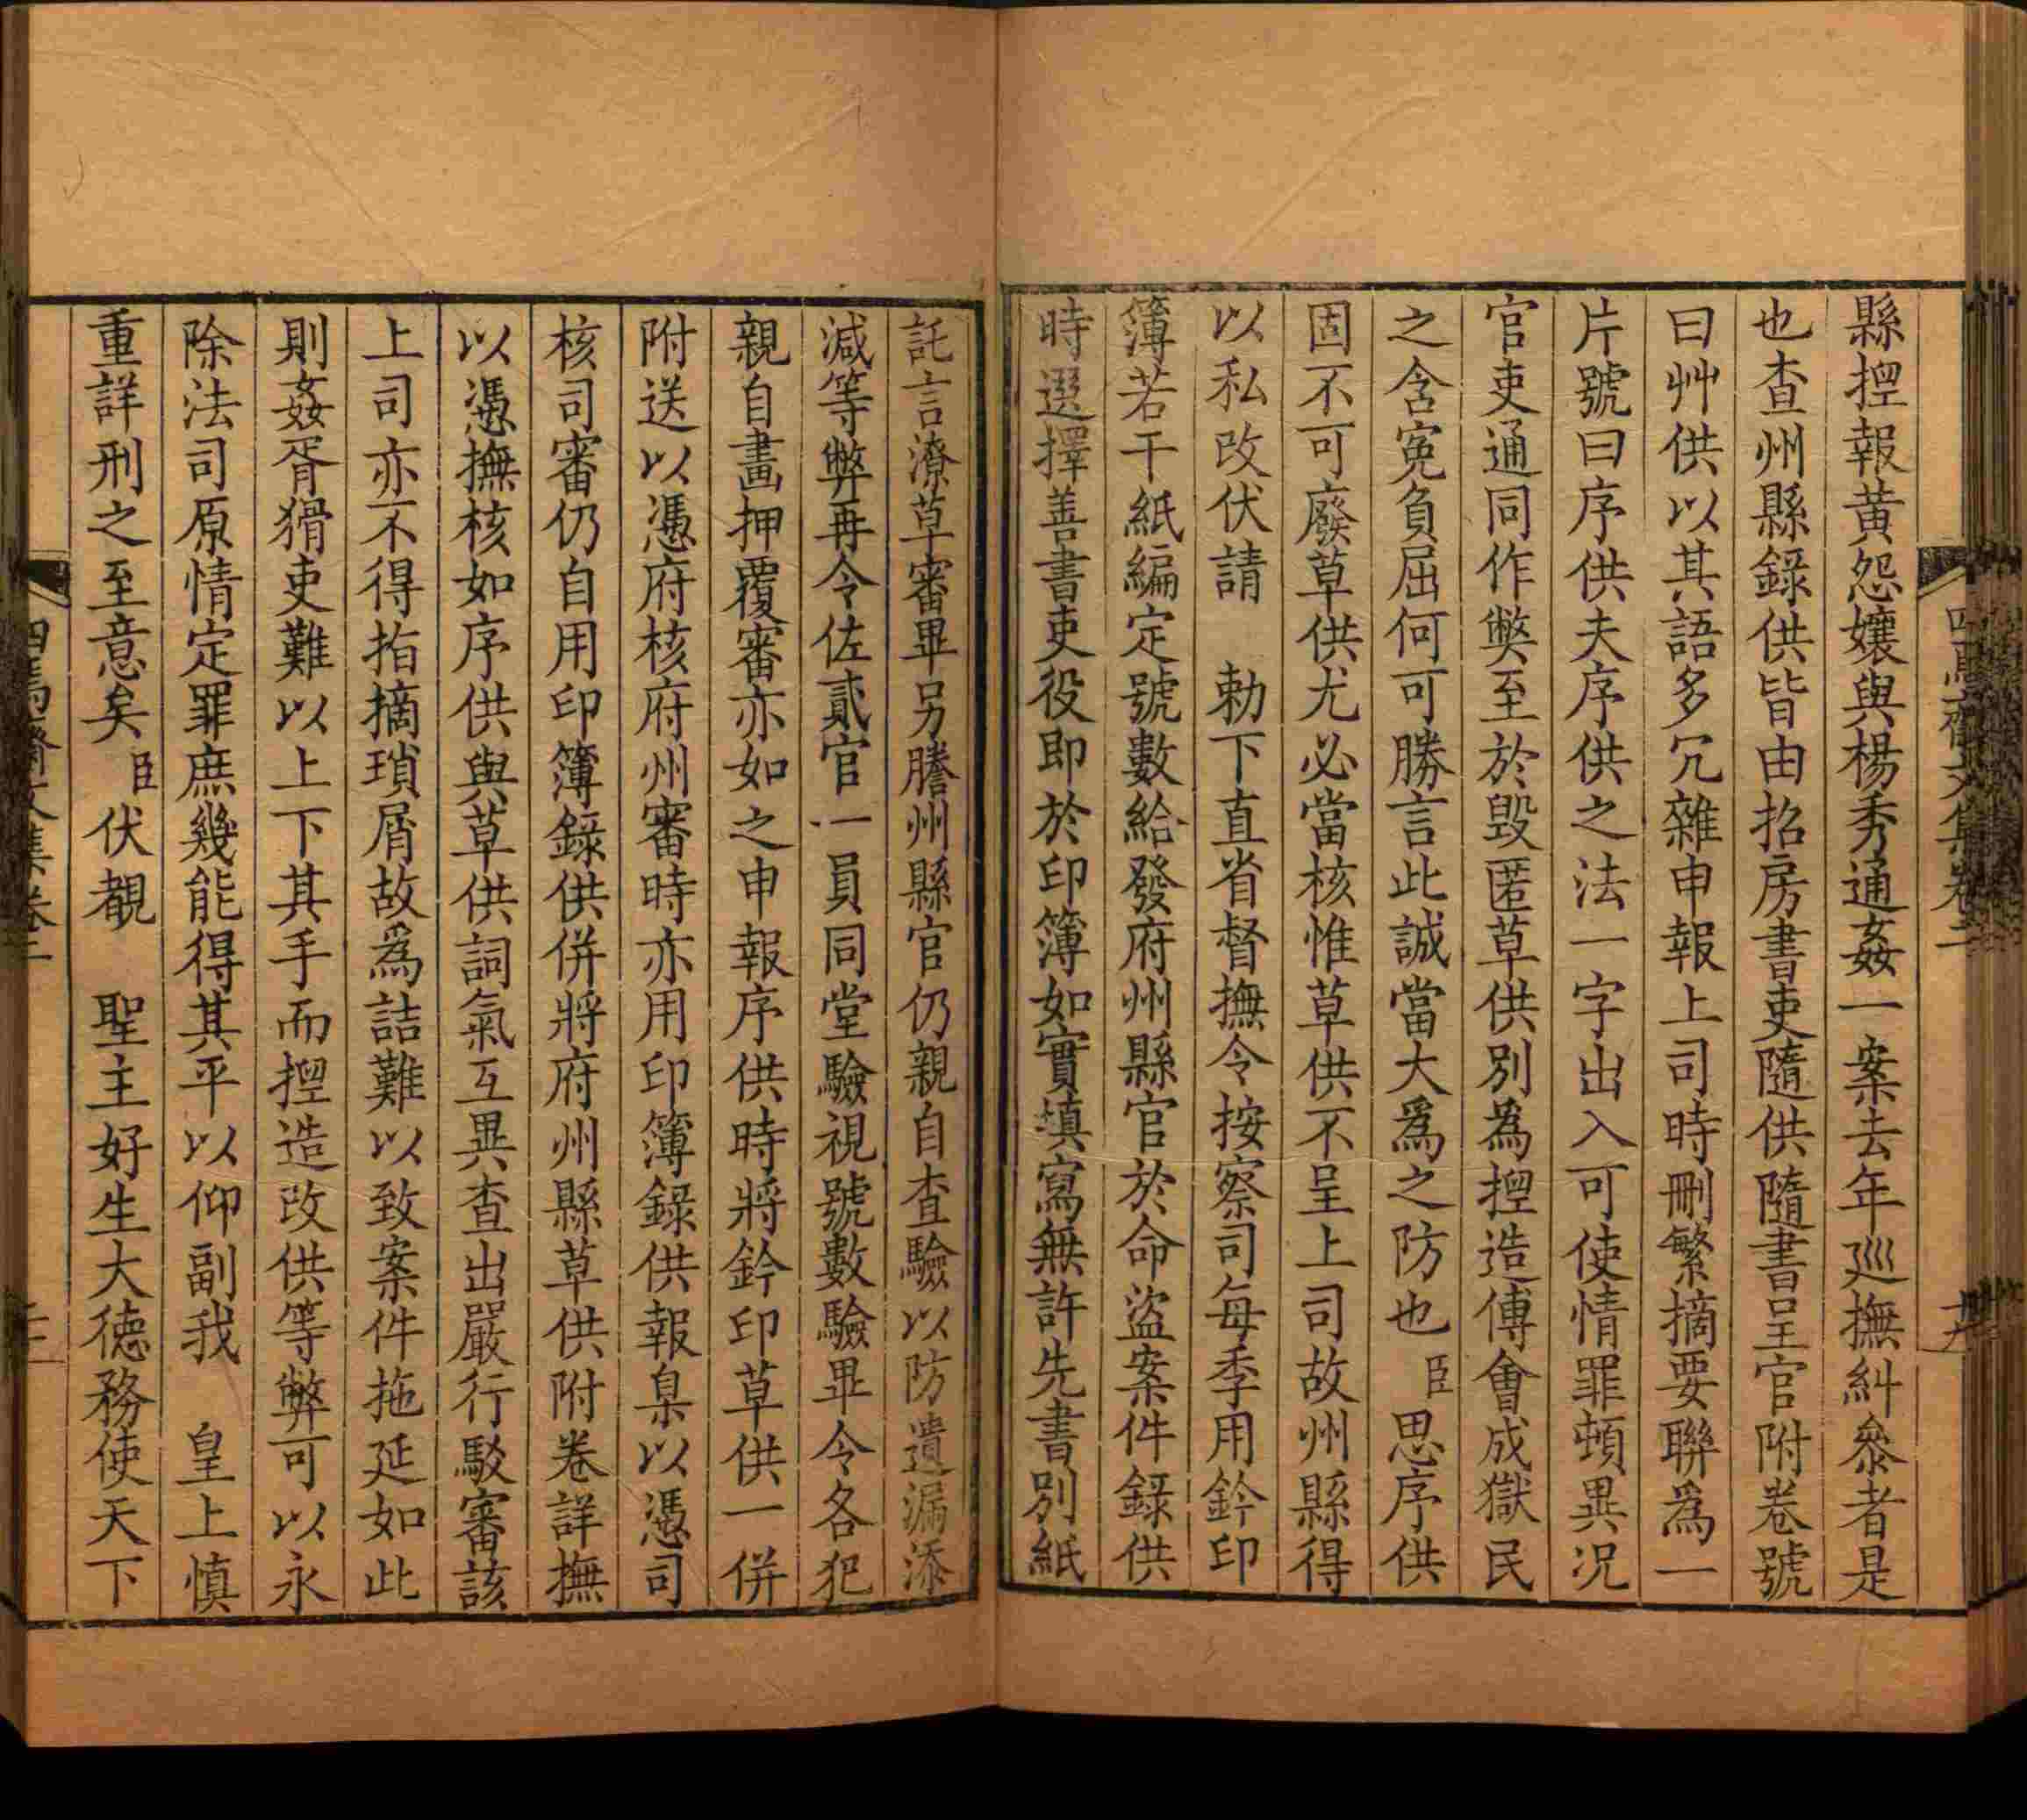 縣揑報黄怨孃與楊秀通姦一案去年巡撫糾叅者是
也查州縣録供皆由招房書吏隨供隨書呈官附卷號
曰艸供以其語多冗雜申報上司時刪繁摘要聯爲一
片號曰序供夫序供之法一字出入可使情罪頓異况
官吏通同作弊至於毀匿草供別爲揑造傅會成獄民
之含寃負屈何可勝言此誠當大爲之防也臣思序供
固不可廢草供尤必當核惟草供不呈上司故州縣得
以私改伏請　勅下直省督撫令按察司每季用鈐印
簿若干紙編定號數給發府州縣官於命盜案件録供
時選擇善書吏役即於印簿如實填寫無許先書別紙
託言潦草審畢另謄州縣官仍親自查驗以防遺漏添
減等弊再令佐貳官一員同堂驗視號數驗畢令各犯
親自畫押覆審亦如之申報序供時將鈐印草供一併
附送以憑府核府州審時亦用印簿録供報臬以憑司
核司審仍自用印簿録供併將府州縣草供附卷詳撫
以憑撫核如序供與草供詞氣互異查出嚴行駁審該
上司亦不得指摘瑣屑故爲詰難以致案件拖延如此
則姦胥猾吏難以上下其手而揑造改供等弊可以永
除法司原情定罪庶幾能得其平以仰副我　皇上慎
重詳刑之至意矣臣伏覩　聖主好生大德務使天下